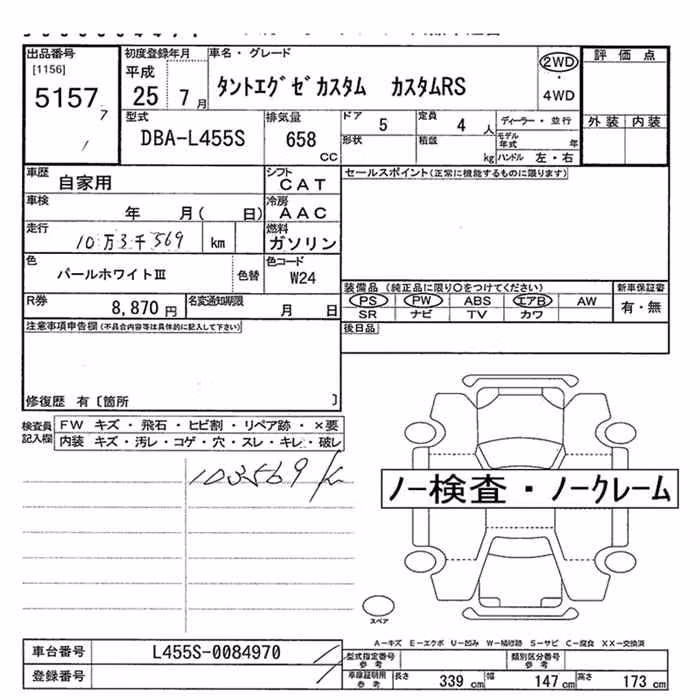 出品番号 初度登録年月 車名・グレード 評価点
[1156] 平成 2WD
5157 25 7月 タントエグゼカスタム カスタムRS ・
7 4WD
型式 排気量 ドア 5 定員 4 人 ディーラー・並行 外装 内装
DBA-L455S 658 cc 形状 積載 kg モデル年式 年
ハンドル 左・右
車歴 自家用 シフト CAT セールスポイント(正常に機能するものに限ります)
車検 年 月( 日) 冷房 AAC
走行 10万3千569 km 燃料 ガソリン
色 パールホワイトⅢ 色替 色コード W24
装備品 (純正品に限り○をつけてください) 新車保証書
R券 8,870円 名変通知期限 月 日 PS PW ABS エアB AW 有・無
SR ナビ TV カワ
注意事項申告欄(不具合内容等は具体的に記入して下さい) 後日品
修復歴 有〔箇所 〕
検査員 FW キズ・飛石・ヒビ割・リペア跡・×要
記入欄 内装 キズ・汚レ・コゲ・穴・スレ・キレ・破レ
103569 K
ノー検査・ノークレーム
スペア
A-キズ E-エクボ U-凹み W-補修跡 S-サビ C-腐食 XX-交換済
車台番号 L455S-0084970 型式指定番号 参考 類別区分番号 参考
登録番号 車庫証明用 参考 長さ 339 cm 幅 147 cm 高さ 173 cm